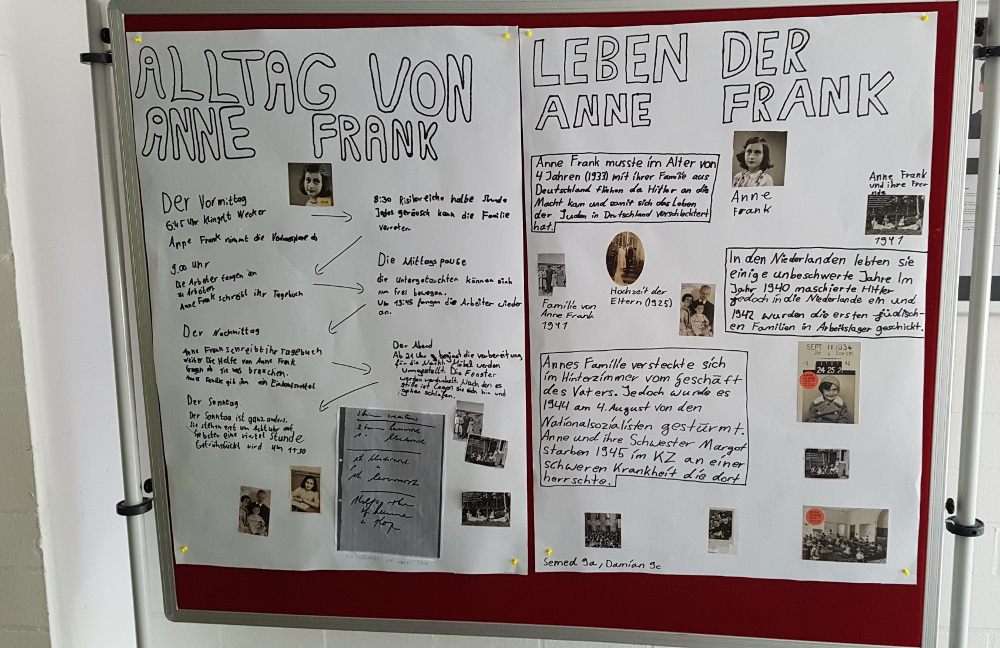 ALLTAG VON
ANNE FRANK
Der Vormittag
6:45 Uhr klingelt Wecker
Anne Frank nimmt die
8:30 Risikoreiche halbe Stunde
Jedes geräusch kann die Familie
verraten
9.00 Uhr
Die Arbeiter fangen an
zu Arbeiten
Anne Frank schreibt ihr Tagebuch
Die Mittagspause
die Untergetauchten können sich
nun frei bewegen.
Um 13:45 fangen die Arbeiter wieder
an.
Der Nachmittag
Anne Frank schreibt ihr Tagebuch
weiter Die Helfe von Anne Frank
fragen ob sie was brauchen.
Anne Familie gib ihn ein Einkaufszettel
Der Abend
Ab 21 Uhr beginnt die vorbereitung
für die Nacht. Möbel werden
umgestellt. Die Fenster
werden verdunkelt. Nach den es
stille ist legen sie sich hin und
gehen schlafen.
Der Sonntag
Der Sonntag ist ganz anders.
Sie stehen erst um Acht Uhr auf
Sie beten eine viertel Stunde
Gefrühstückt wird um 11:30
LEBEN DER
ANNE FRANK
Anne Frank musste im Alter von
4 Jahren (1933) mit ihrer Familie aus
Deutschland fliehen da Hitler an die
Macht kam und somit sich das Leben
der Juden in Deutschland verschlechtert
hat.
Anne
Frank
Anne Frank
und ihre Freu-
nde
1941
Hochzeit der
Eltern (1925)
Familie von
Anne Frank
1941
In den Niederlanden lebten sie
einige unbeschwerte Jahre Im
Jahr 1940 maschierte Hitler
jedoch in die Niederlande ein und
1942 wurden die ersten jüdisch-
en Familien in Arbeitslager geschickt.
SEPT 11 1934
24 25 2
Annes Familie versteckte sich
im Hinterzimmer vom geschäft
des Vaters. Jedoch wurde es
1944 am 4. August von den
Nationalsozialisten gestürmt.
Anne und ihre Schwester Margot
starben 1945 im KZ an einer
schweren Krankheit die dort
herrschte.
Semed 9a, Damian 9c